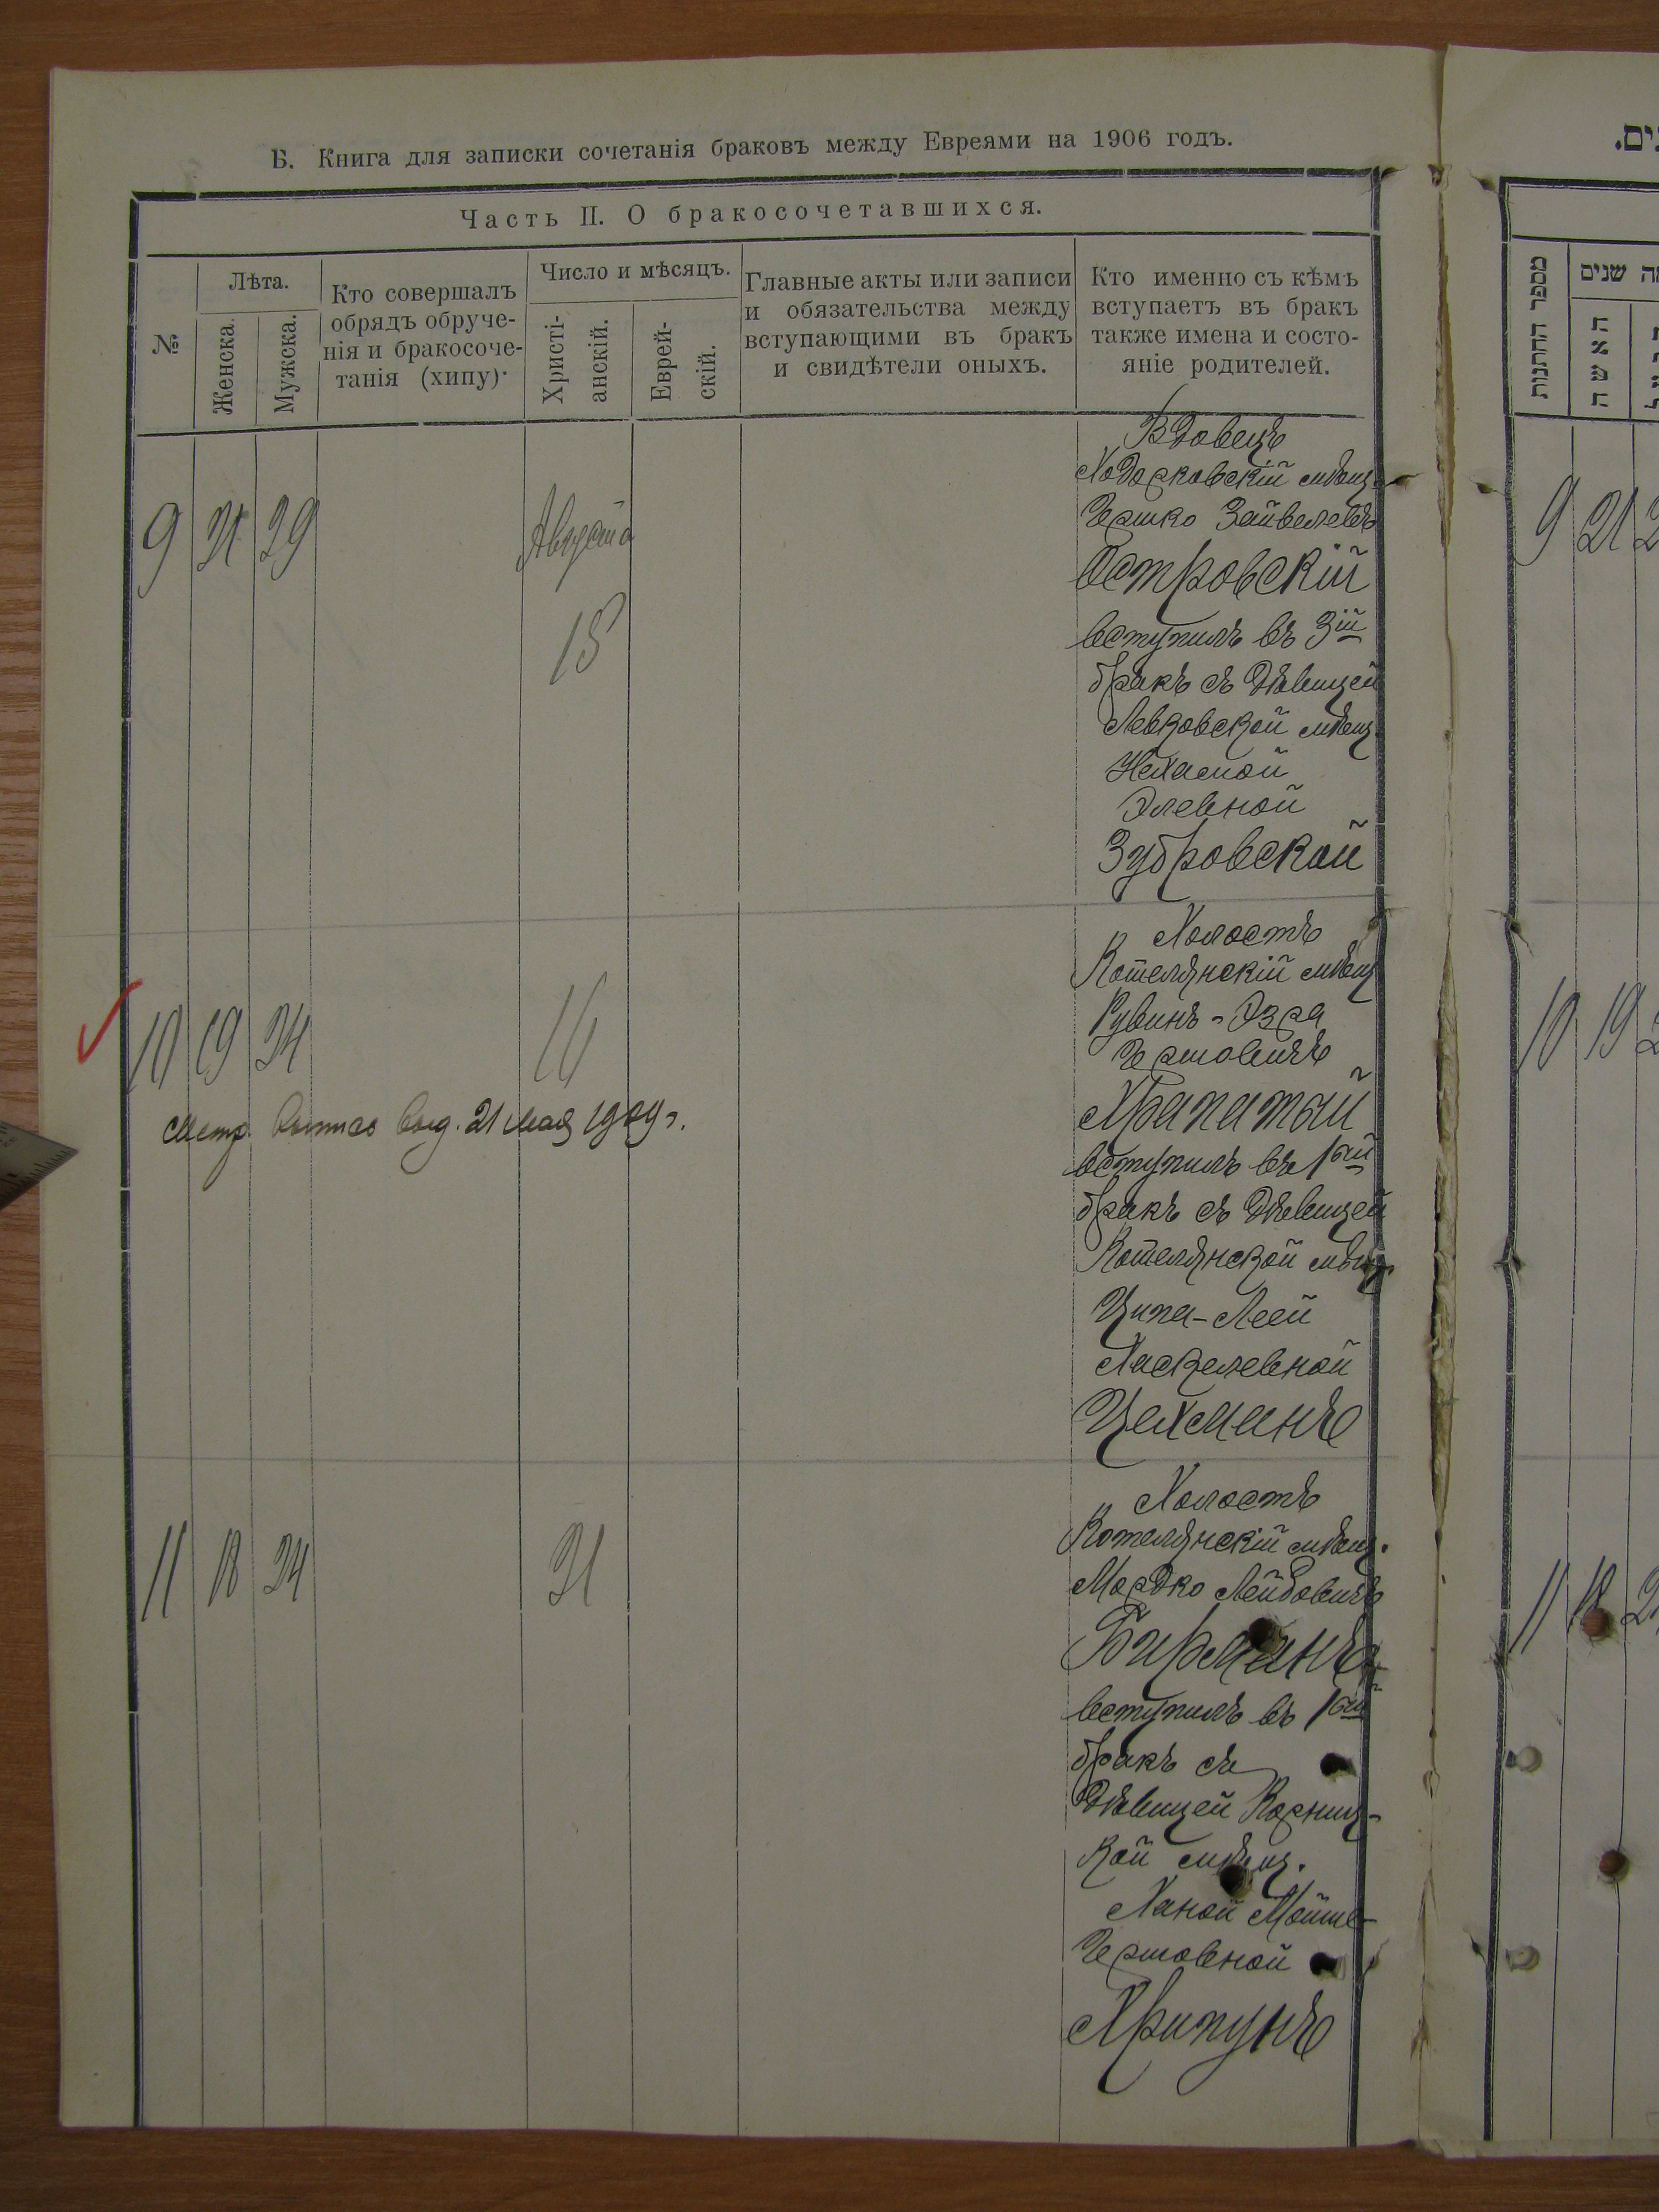 Б. Книга для записки сочетанія браковъ между Евреями на 1906 годъ.
Часть II. О бракосочетавшихся.
№
Лѣта.
Женска.
Мужска.
Кто совершалъ
обрядъ обруче-
нія и бракосоче-
танія (хипу).
Число и мѣсяцъ.
Христі-
анскій.
Еврей-
скій.
Главные акты или записи
и обязательства между
вступающими въ бракъ
и свидѣтели оныхъ.
Кто именно съ кѣмъ
вступаетъ въ бракъ
также имена и состо-
яніе родителей.
9 21 29
Августа
15
Вдовецъ
Ходорковскій мѣщ.
Гершко Зейвелевъ
Островскій
вступилъ въ 3ій
бракъ съ дѣвицей
Левковской мѣщ.
Нехамой
Элевной
Зубровской
10 19 24
16
Метр. выпись выд. 21 мая 1909 г.
Холостъ
Котелянскій мѣщ
Рувинъ-Эзра
Гершовичъ
Храпатый
вступилъ въ 1ый
бракъ съ дѣвицей
Котелянской мѣщ.
Ципа-Леей
Хаскелевной
Цехманъ
11 18 24
21
Холостъ
Котелянскій мѣщ.
Мордко Лейбовичъ
Бирманъ
вступилъ въ 1ый
бракъ съ
дѣвицей Корниц-
кой мѣщ.
Ханой Мойше-
Гершовной
Хрипунъ
מספר החתונות
שנים
האשה
9 21
10 19
11 18